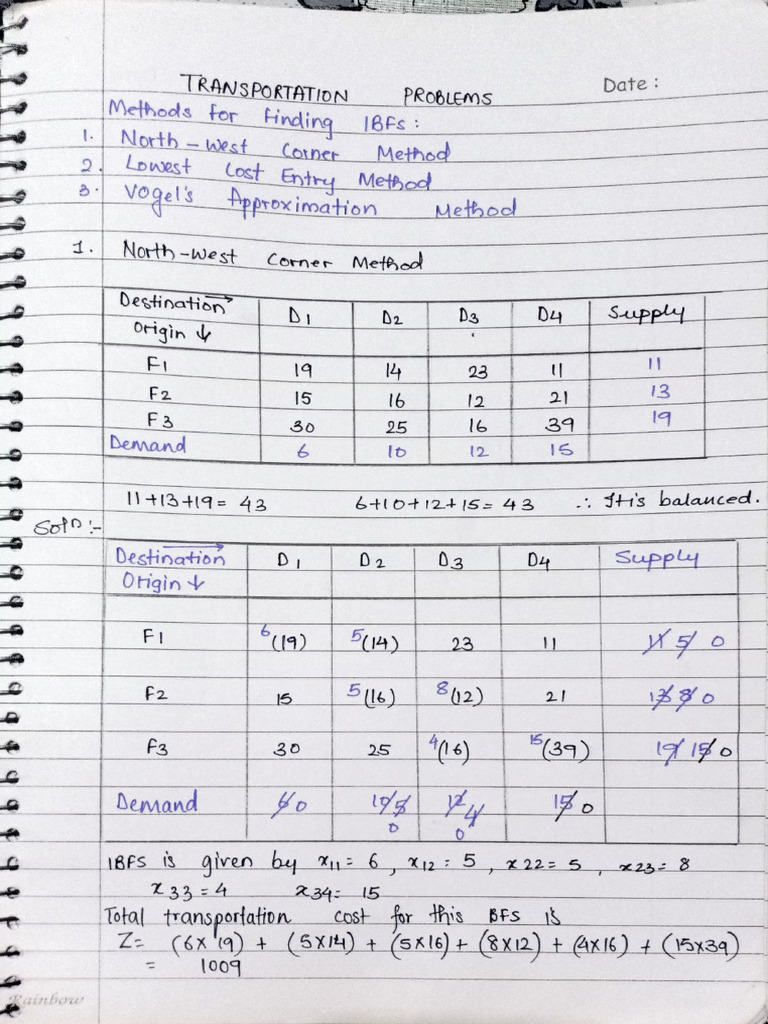 TRANSPORTATION PROBLEMS Date :
Methods for finding IBFs :
1. North-west Corner Method
2. Lowest Cost Entry Method
3. Vogel's Approximation Method
1. North-west Corner Method
Destination → D1 D2 D3 D4 Supply
Origin ↓
F1 19 14 23 11 11
F2 15 16 12 21 13
F3 30 25 16 39 19
Demand 6 10 12 15
11+13+19= 43 6+10+12+15= 43 ∴ It is balanced.
Soln :-
Destination → D1 D2 D3 D4 Supply
Origin ↓
F1 6(19) 5(14) 23 11 11 5 0
F2 15 5(16) 8(12) 21 13 8 0
F3 30 25 4(16) 15(39) 19 15 0
Demand 6 0 10 5 12 4 15 0
0 0
IBFS is given by x11= 6 , x12 = 5 , x22 = 5 , x23= 8
x33 = 4 x34= 15
Total transportation cost for this BFS is
Z= (6×19) + (5×14) + (5×16) + (8×12) + (4×16) + (15×39)
= 1009
Rainbow